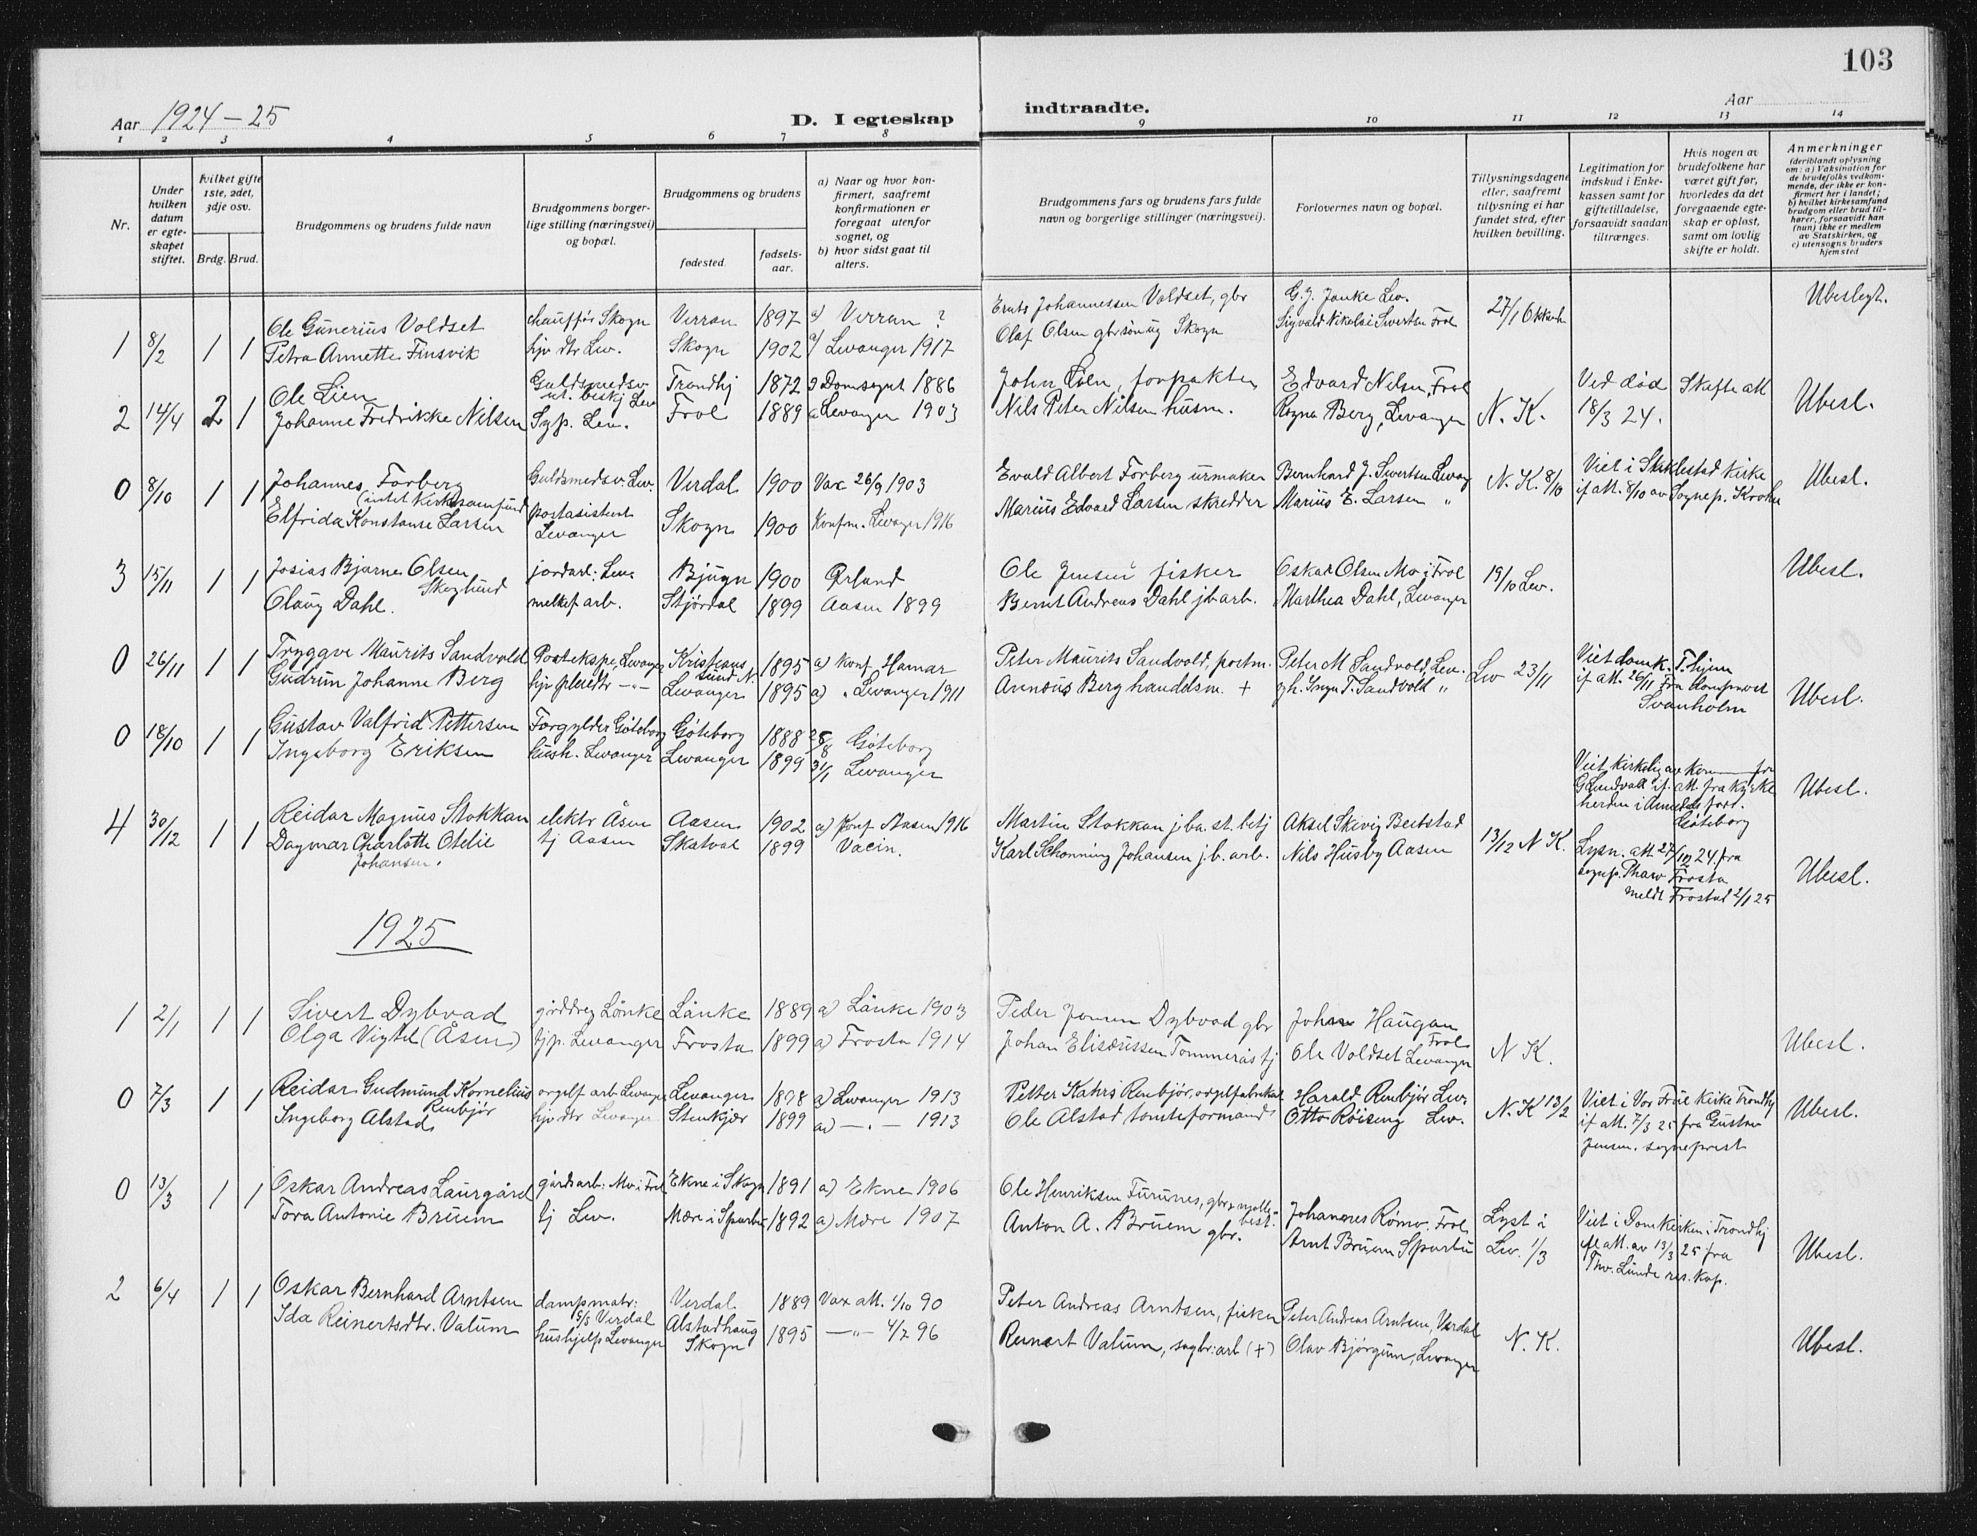 103
Aar 1924-25
D. I egteskap
indtraadte.
Aar
1 2 3 4 5 6 7 8
9 10 11 12 13 14
Nr.
Under hvilken datum er egteskapet stiftet.
Hvilket gifte 1ste, 2det, 3dje osv.
Brdg. Brud.
Brudgommens og brudens fulde navn
Brudgommens borgerlige stilling (næringsvei) og bopæl.
Brudgommens og brudens
fødested.
fødselsaar.
a) Naar og hvor konfirmert, saafremt konfirmationen er foregaat utenfor sognet, og
b) hvor sidst gaat til alters.
Brudgommens fars og brudens fars fulde navn og borgerlige stillinger (næringsvei).
Forlovernes navn og bopæl.
Tillysningsdagene eller, saafremt tillysning ei har fundet sted, efter hvilken bevilling.
Legitimation for indskud i Enkekassen samt for giftetilladelse, forsaavidt saadan tiltrænges.
Hvis nogen av brudefolkene har været gift før, hvorledes da det foregaaende egteskap er opløst, samt om lovlig skifte er holdt.
Anmerkninger
(deriblandt oplysning om: a) Vaksination for de brudefolks vedkommende, der ikke er konfirmert her i landet; b) hvilket kirkesamfund brudgom eller brud tilhører, forsaavidt han (hun) ikke er medlem av Statskirken, og c) utensogns bruders hjemsted
1 8/2 1 1 Ole Gunerius Voldset chauffør Skogn Verran 1897 a) Verran ? Johannessen Voldset, gbr G. J. Lev. 27/1 Ubeslegt.
Petra Annette Finsvik hjv dtr Lev. Skogn 1902 a) Levanger 1917 Olaf Olsen Skogn Sigvald Nikolai Sivertsen Frol
2 14/4 2 1 Ole Lien Guldsmedsv. Lev Trondhj 1872 a Domsognet 1886 John Lien, forpakter Edvard Nilsen, Frol N. K. Ved død 18/3 24. Skifte att Ubesl.
Johanne Fredrikke Nilsen Syp. Lev. Frol 1889 a Levanger 1903 Nils Peter Nilsen husm. Ragna Berg, Levanger
0 8/10 1 1 Johannes Forberg (intet Kirkesamfund) Guldsmedsv. Lev. Verdal 1900 Vac 26/9 1903 Evald Albert Forberg urmaker Bernhard J. Sivertsen Levang N. K. 8/10 Viet i Stiklestad kirke if att. 8/10 av Sognep. Ubesl.
Elfrida Konstanse Larsen postasistent Levanger Skogn 1900 Konfm. Levanger 1916 Marius Edvard Larsen skredder Marius E. Larsen "
3 15/11 1 1 Josias Bjarne Olsen Skoglund jordarb: Lev. Bjugn 1900 Ørland Ole Jensen fisker Oskar Olsen Mo i Frol 19/10 Lev. Ubesl.
Olaug Dahl. melkef arb. Stjørdal 1899 Aasen 1899 Bernt Andreas Dahl jb arb. Marthea Dahl, Levanger
0 26/11 1 1 Tryggve Maurits Sandvold Postekspe, Levanger Kristiansund N. 1895 a) Konf. Hamar Peter Maurits Sandvold, postm. Peter M Sandvold, Lev. Lev 23/11 Viet domk. T.hjem if att. 26/11 fra domprost Svanholm Ubesl.
Gudrun Johanne Berg -"- Levanger 1895 a) " Levanger 1911 Arendus Berg handelsm. + T. Sandvold "
0 18/10 1 1 Gustav Valfrid Pettersen Forgylder Göteborg Göteborg 1888 28/8 Göteborg
Ingeborg Eriksen Levanger Levanger 1899 31/1 Levanger Viet kirkelig av Göteborg Ubesl.
4 30/12 1 1 Reidar Magnus Stokkan elektr Åsen Aasen 1902 a) Konf Aasen 1916 Martin Stokkan j.ba. st. betj Aksel Skevig Beitstad 13/12 N K. Lysn. att 27/12 24. fra sognep. Frosta meldt Frostad 2/1 25 Ubesl.
Dagmar Charlotte Otelie Johansen. tj Aasen Skatval 1899 Vacin. Karl Schonning Johansen j.b. arb. Nils Husby Aasen
1925
1 2/1 1 1 Sivert Dybvad Lånke Lånke 1889 a) Lånke 1903 Peder Dybvad gbr Johan Haugan Frol N K. Ubesl.
Olga Vigtel (Åsen) tjp. Levanger Frosta 1899 a) Frosta 1914 Johan Elisæussen Tommerås tj Ole Voldset Levanger
0 7/3 1 1 Reidar Gudmund Kornelius Renbjør orgelf arb Levanger Levanger 1898 a) Levanger 1913 Petter Kahrs Renbjør, orgelfabrikat Harald Renbjør Lev. N. K 13/2 Viet i Vor Frue kirke Trondhj if att. 7/3 25 fra Gustav Jensen. sogneprest Ubesl.
Ingeborg Alstad hjv dtr Levanger Stenkjær 1899 a) -"- 1913 Ole Alstad tomteformand Otto Röising Lev.
0 13/3 1 1 Oskar Andreas Laurgård gårdsarb: Mo i Frol Ekne i Skogn 1891 a) Ekne 1906 Ole Henriksen Furunes, gbr Johannes Frol Lyst i Lev. 1/3 Viet i Domkirken i Trondhj att. av 13/3 25 fra Thv. Lunde res. kap. Ubesl.
Tora Antonie Bruem tj Lev. Mære i Sparbu 1892 a) Mære 1907 Anton A. Bruem gbr. Arnt Bruem Sparbu
2 6/4 1 1 Oskar Bernhard Arntsen dampmatr: Verdal Verdal 1889 Vax att. 1/10 90 Peter Andreas Arntsen, fisker Peter Andreas Arntsen, Verdal N. K. Ubesl.
Ida Reinertsdtr. Valum hushjelp Levanger Alstadhaug Skogn 1895 -"- 4/7 96 Reinert Valum, sagbr: arb (+) Olav Bjørgum, Levanger